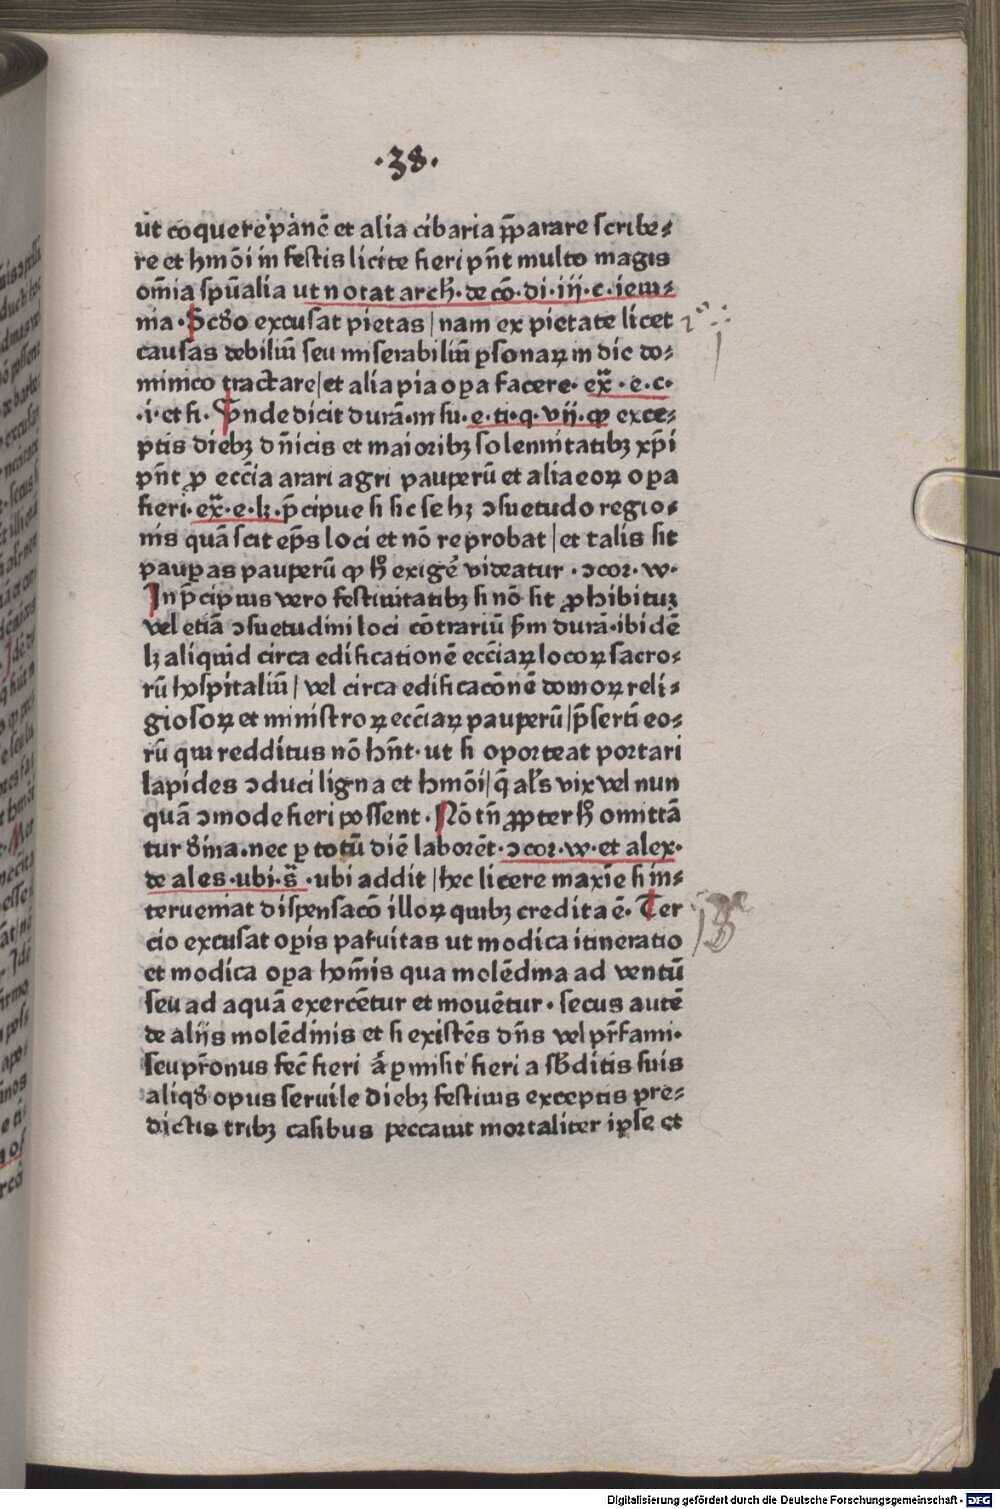 ·38·
ut coquere panē et alia cibaria p̄parare scribe⸗
re et hmōi in festis licite fieri pn̄t multo magis
om̄ia spūalia ut notat arch̄·de cō·di·iij·c·ieiu⸗
nia·Scd̄o excusat pietas|nam ex pietate licet
causas debiliū seu miserabiliū ꝑsonaꝝ in die do⸗
minico tractare|et alia pia oꝑa facere·ex̄·e·c·
·i·et fi·Vnde dicit durā·in su·e·ti·q·vij·ꝙ exce⸗
ptis diebꝫ dn̄icis et maioribꝫ solennitatibꝫ xp̄i
pn̄t ꝓ ecc̄ia arari agri pauperū et alia eoꝝ oꝑa
fieri·ex̄·e·lꝫ·p̄cipue si sic se hꝫ ꝯsuetudo regio⸗
nis quā scit ep̄s loci et nō reprobat|et talis sit
pauꝑas pauperū ꝙ h̄ exigē videatur·ꝯcor·w·
In p̄cipuis vero festiuitatibꝫ si nō sit ꝓhibitū
vel etiā ꝯsuetudini loci cōtrariū s̄m durā·ibidē
lꝫ aliquid circa edificationē ecc̄iaꝝ locoꝝ sacro⸗
rū hospitaliū|vel circa edificacōnē domoꝝ reli⸗
giosoꝝ et ministroꝝ ecc̄iaꝝ pauperū|p̄serti eo⸗
rū qui redditus nō hn̄t·ut si oporteat portari
lapides ꝯduci ligna et hmōi|q̄ al̄s vix vel nun
quā ꝯmode fieri possent·Nō tn̄ ꝓpter h̄ omittā
tur d̄ina·nec ꝑ totū diē laborēt·ꝯcor·w·et alex·
de ales·ubi·s̄·ubi addit|hec licere maxīe si in⸗
terueniat dispensacō illoꝝ quibꝫ credita ē·Ter
cio excusat oꝑis paruitas ut modica itineratio
et modica oꝑa hom̄is qua molēdina ad ventū
seu ad aquā exercētur et mouētur·secus autē
de alijs molēdinis et si existēs dn̄s vel pr̄fami·
seu pr̄onus fec̄ fieri ꝑmisit fieri a sb̄ditis suis
aliqd̄ opus seruile diebꝫ festiuis exceptis pre⸗
dictis tribꝫ casibus peccauit mortaliter ipse et
Digitalisierung gefördert durch die Deutsche Forschungsgemeinschaft · DFG